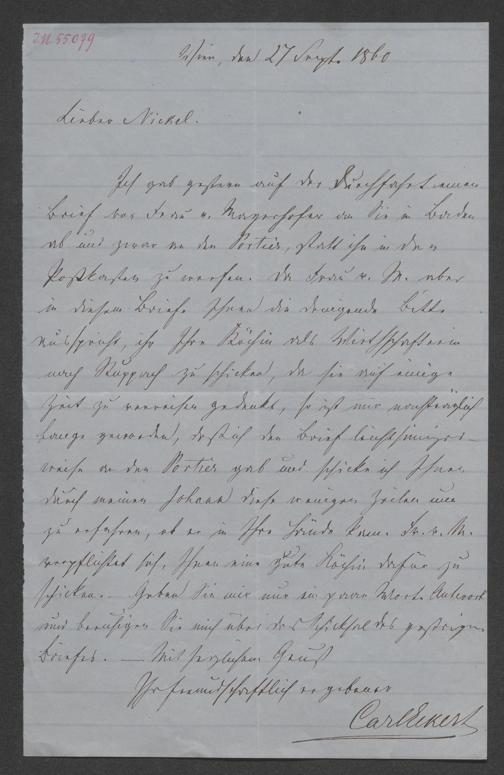 IN 55099
Wien, den 27 Sept. 1860
Lieber Nickel.
Ich gab gestern auf der Durchfahrt einen
Brief von Frau v. Mayerhofer an Sie in Baden
ab und zwar an den Portier, statt ihn in den
Postkasten zu werfen. Da Frau v. M. aber
in diesem Briefe Ihnen die dringende Bitte
ausspricht, ihr Ihre Köchin als Wirthschafterin
nach Stuppach zu schicken, da sie auf einige
Zeit zu verreisen gedenkt, so ist mir nachträglich
bange geworden, daß ich den Brief leichtsinniger-
weise an den Portier gab und schicke ich Ihnen
durch meinen Johann diese wenigen Zeilen um
zu erfahren, ob er in Ihre Hände kam. Fr. v. M.
verpflichtet sich, Ihnen eine gute Köchin dafür zu
schicken. – Geben Sie mir nur ein paar Worte Antwort
und beruhigen Sie mich über das Schicksal des gestrigen
Briefes. — Mit herzlichem Gruß
Ihr freundschaftlich ergebener
Carl Eckert